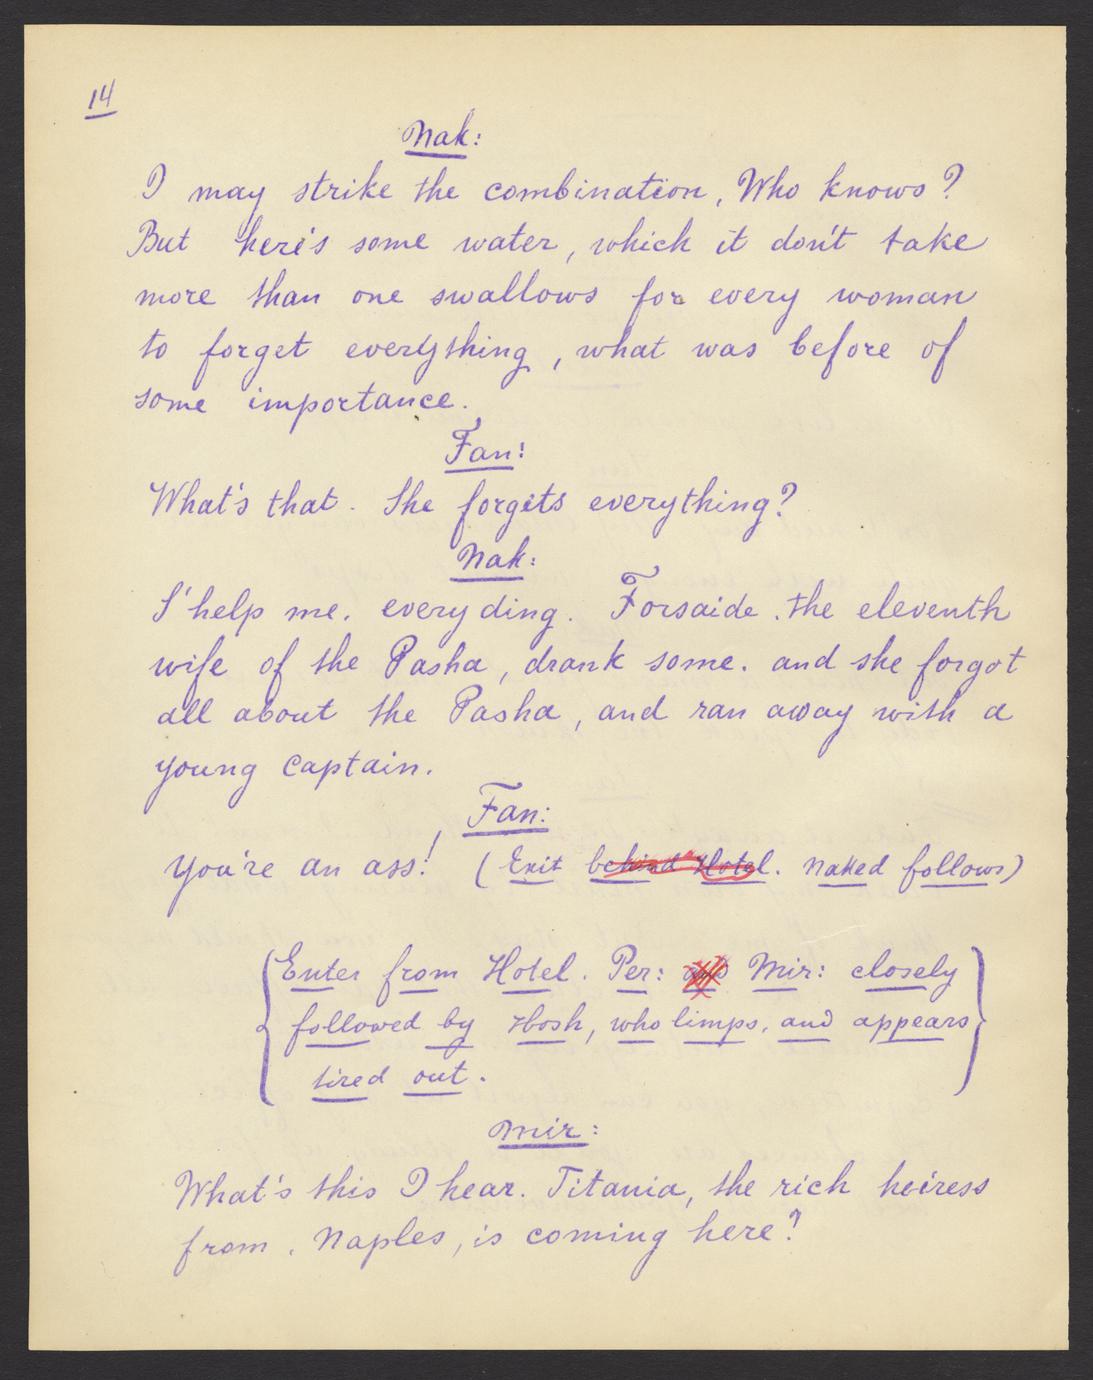 14
Nak:
I may strike the combination, Who knows?
But here's some water, which it don't take
more than one swallows for every woman
to forget everything, what was before of
some importance.
Fan:
What's that. She forgets everything?
Nak:
S'help me. every ding. Forsaide. the eleventh
wife of the Pasha, drank some. and she forgot
all about the Pasha, and ran away with a
young captain.
Fan:
You're an ass! (Exit behind Hotel. Naked follows)
Enter from Hotel. Per: Mir: closely
followed by Hosh, who limps, and appears
tired out.
Mir:
What's this I hear. Titania, the rich heiress
from. Naples, is coming here?